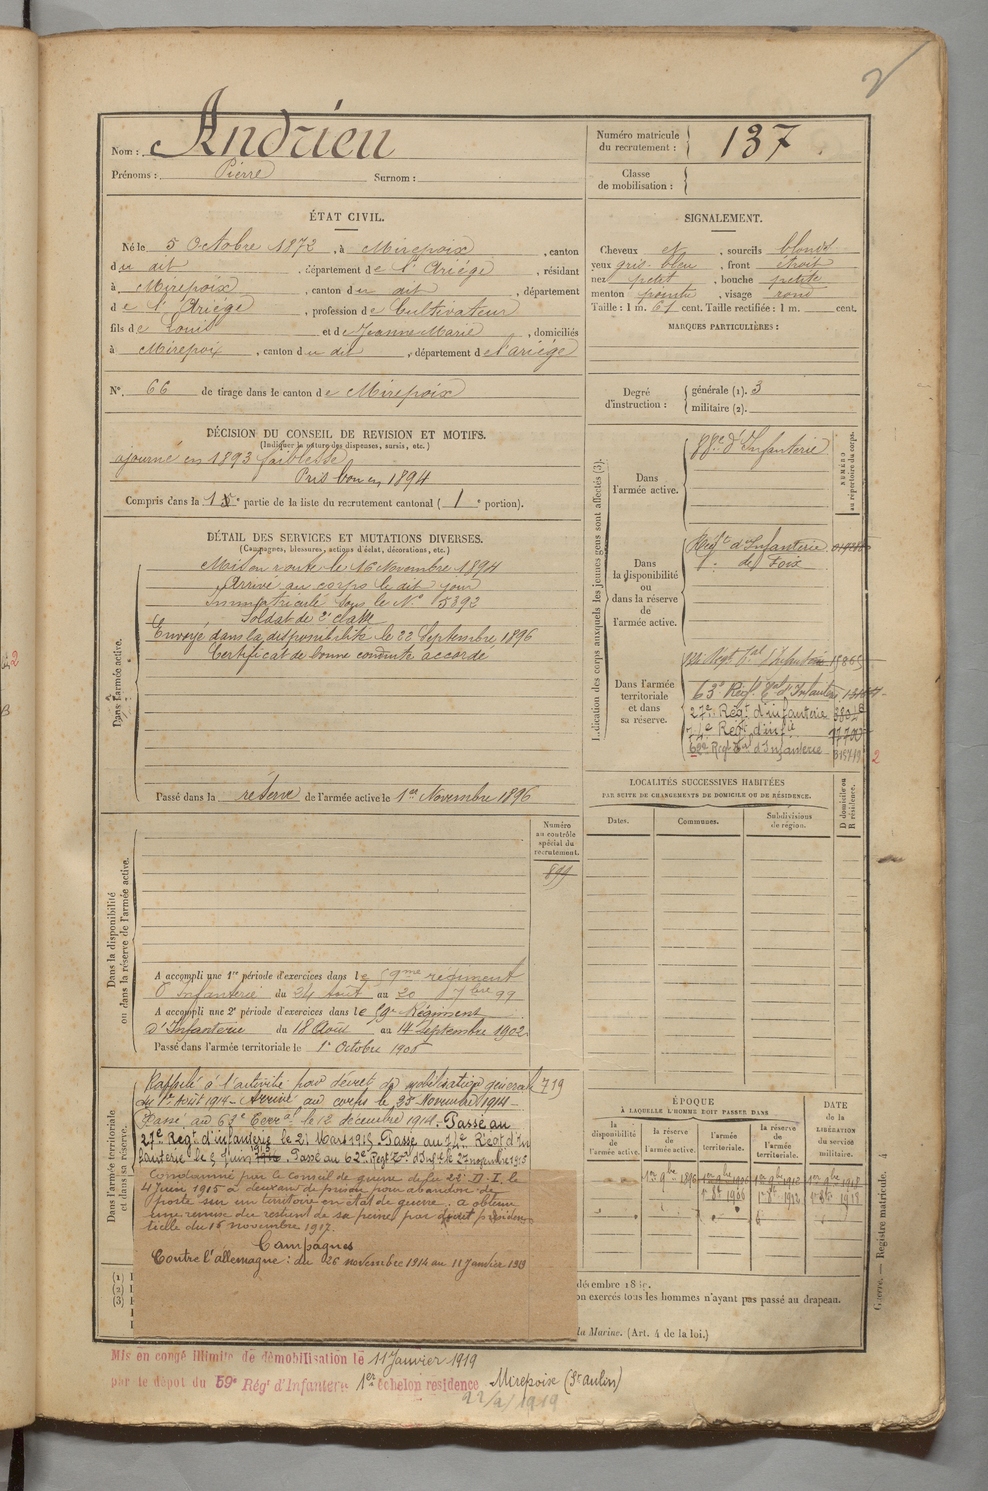 2
Nom : Andrieu
Prénoms : Pierre Surnom :
Numéro matricule du recrutement : 137
Classe de mobilisation :
ÉTAT CIVIL.
Né le 5 Octobre 1872, à Mirepoix, canton
du dit, département de l'Ariége, résidant
à Mirepoix, canton du dit, département
de l'Ariége, profession de Cultivateur
fils de Louis et de Jeanne Marie, domiciliés
à Mirepoix, canton du dit, département de l'ariége
N° 66 de tirage dans le canton de Mirepoix
SIGNALEMENT.
Cheveux et, sourcils blonds
yeux gris-bleu, front étroit
nez petit, bouche petite
menton pointu, visage rond
Taille : 1 m. 67 cent. Taille rectifiée : 1 m. cent.
MARQUES PARTICULIÈRES :
Degré d'instruction : générale (1). 3
militaire (2).
DÉCISION DU CONSEIL DE REVISION ET MOTIFS.
(Indiquer la nature des dispenses, sursis, etc.)
ajourné en 1893 faiblesse
Pris bon en 1894
Compris dans la 1e partie de la liste du recrutement cantonal ( 1 e portion).
DÉTAIL DES SERVICES ET MUTATIONS DIVERSES.
(Campagnes, blessures, actions d'éclat, décorations, etc.)
Dans l'armée active.
Mis en route le 16 Novembre 1894
Arrivé au corps le dit jour
Immatriculé sous le N° 5392
Soldat de 2e classe
Envoyé dans la disponibilité le 22 Septembre 1896
Certificat de bonne conduite accordé
Passé dans la réserve de l'armée active le 1er Novembre 1896
Indication des corps auxquels les jeunes gens sont affectés (3).
NUMÉRO au répertoire du corps.
Dans l'armée active.
88e d'Infanterie
Dans la disponibilité ou dans la réserve de l'armée active.
Régt d'Infanterie
de Foix
Dans l'armée territoriale et dans sa réserve.
63e Régt tal d'Infanterie
27e Régt d'infanterie
74e Régt d'infie
62e Régt Tal d'Infanterie
2
LOCALITÉS SUCCESSIVES HABITÉES
PAR SUITE DE CHANGEMENTS DE DOMICILE OU DE RÉSIDENCE.
Dates. Communes. Subdivisions de région. D domicile ou R résidence.
Dans la disponibilité ou dans la réserve de l'armée active.
Numéro au contrôle spécial du recrutement.
899
A accompli une 1re période d'exercices dans le 59me régiment
d'Infanterie du 24 Août au 20 7bre 99
A accompli une 2e période d'exercices dans le 59e Régiment
d'Infanterie du 18 Août au 14 Septembre 1902.
Passé dans l'armée territoriale le 1er Octobre 1906
Dans l'armée territoriale et dans sa réserve.
Rappelé à l'activité par décret de mobilisation générale 719
du 1er Août 1914 - Arrivé au corps le 25 Novembre 1914 -
Passé au 63e Terral le 12 décembre 1914. Passé au
27e Régt d'infanterie le 21 Mars 1915 Passé au 74e Régt d'in
fanterie le 5 Juin 1915. Passé au 62e Régt Tal d'Inf le 27 novembre 1915
Condamné par le conseil de guerre de la 22e D. I. le
4 Juin 1915 à deux ans de prison pour abandon de
poste sur un territoire en état de guerre. a obtenu
une remise du restant de sa peine par décret présiden
tielle du 16 novembre 1917.
Campagnes
Contre l'allemagne : du 26 novembre 1914 au 11 Janvier 1919
ÉPOQUE
À LAQUELLE L'HOMME DOIT PASSER DANS
DATE de la LIBÉRATION du service militaire.
la disponibilité de l'armée active.
la réserve de l'armée active.
l'armée territoriale.
la réserve de l'armée territoriale.
1er 9bre 1896
1er 8bre 1906
1er 8bre 1912
1er 8bre 1918
(1)
(2)
(3)
décembre 18
on exercés tous les hommes n'ayant pas passé au drapeau.
la Marine. (Art. 4 de la loi.)
Guerre. — Registre matricule. 4
Mis en congé illimité de démobilisation le 11 Janvier 1919
par le dépôt du 59e Régt d'Infanterie 1er échelon residence Mirepoix (St aulin)
22/2/1919